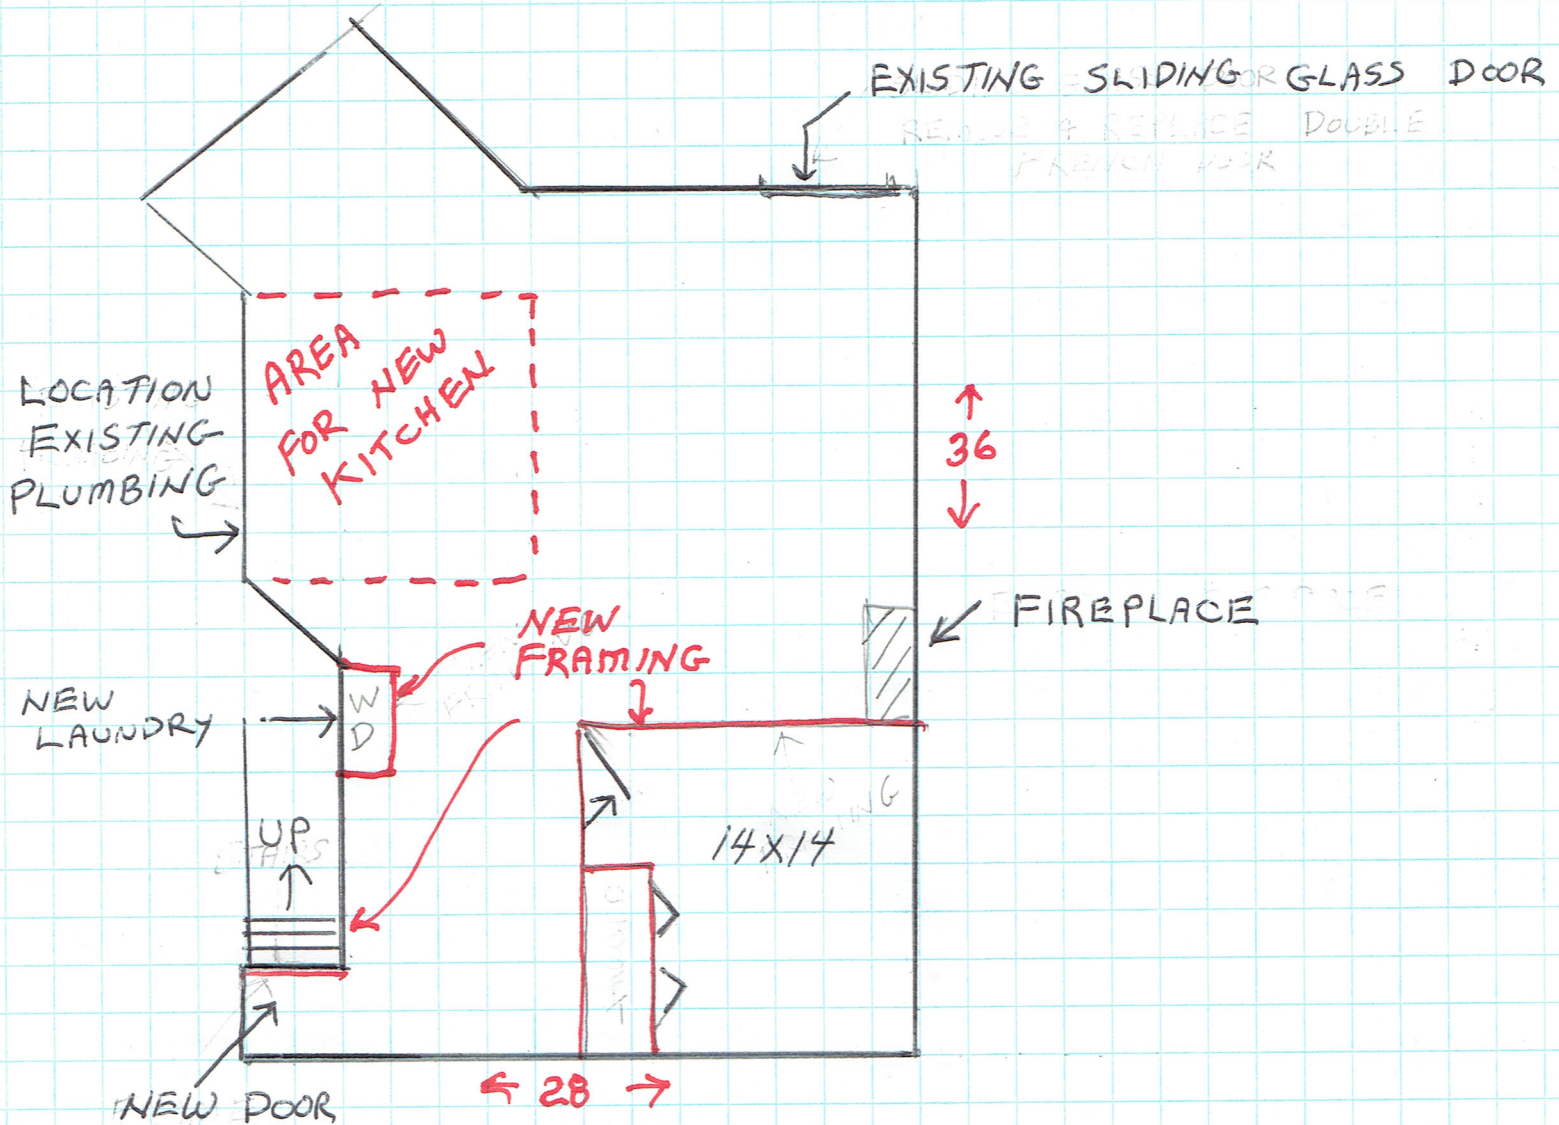 EXISTING SLIDING GLASS DOOR
REMOVE & REPLACE DOUBLE
FRENCH DOOR
AREA
FOR NEW
KITCHEN
LOCATION
EXISTING
PLUMBING
36
FIREPLACE
NEW
FRAMING
NEW
LAUNDRY
W
D
UP
STAIRS
14X14
28
NEW DOOR